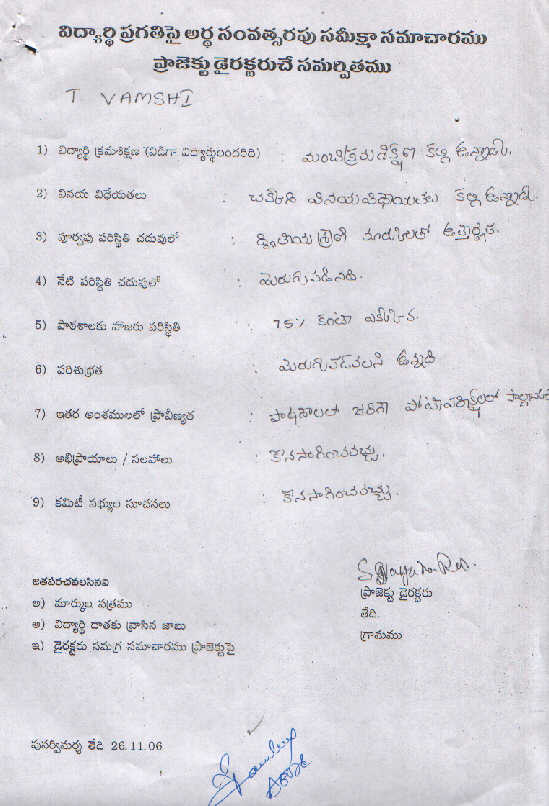 విద్యార్థి ప్రగతిపై అర్థ సంవత్సరపు సమీక్షా సమాచారము
ప్రాజెక్టు డైరక్టరుచే సమర్పితము
T VAMSHI
1) విద్యార్థి క్రమశిక్షణ (విడిగా విద్యార్థులందరిది) : మంచి క్రమశిక్షణ కల్గి ఉన్నాడు.
2) వినయ విధేయతలు : చక్కని వినయవిధేయతలు కల్గి ఉన్నాడు.
3) పూర్వపు పరిస్థితి చదువులో : ద్వితీయ శ్రేణి మార్కులతో ఉత్తీర్ణత.
4) నేటి పరిస్థితి చదువులో : మెరుగుపడినది.
5) పాఠశాలకు హాజరు పరిస్థితి : 75% కంటే ఎక్కువ.
6) పరిశుభ్రత : మెరుగుపడవలసి ఉన్నది
7) ఇతర అంశములలో ప్రావీణ్యత : పాఠశాలలో జరిగే
8) అభిప్రాయాలు / సలహాలు : కొనసాగించవచ్చు.
9) కమిటీ సభ్యుల సూచనలు : కొనసాగించవచ్చు.
జతపరచవలసినవి
అ) మార్కుల పత్రము
ఆ) విద్యార్థి దాతకు వ్రాసిన జాబు
ఇ) డైరక్టరు సమగ్ర సమాచారము ప్రాజెక్టుపై
ప్రాజెక్టు డైరక్టరు
తేది
గ్రామము
పునర్విమర్శ తేది 26.11.06